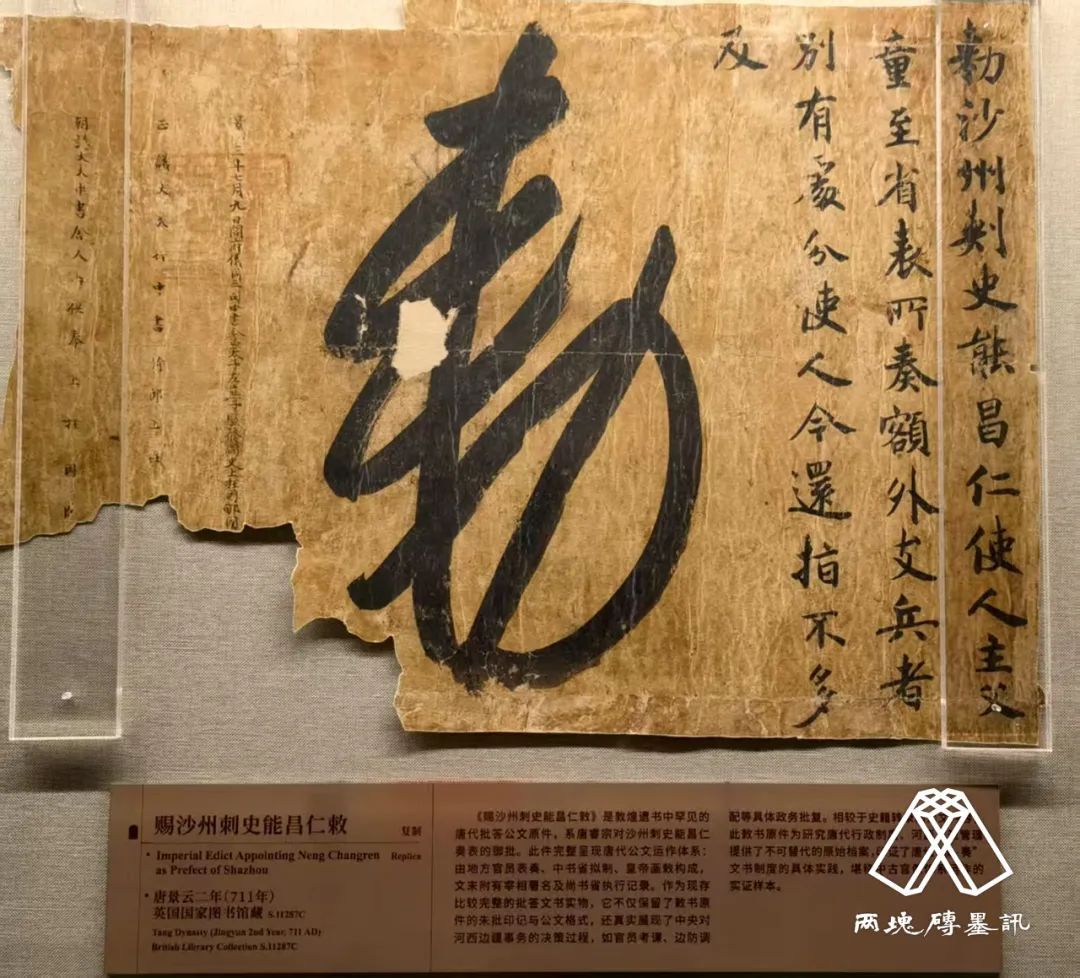 勑沙州刺史能昌仁使人主父
童至省表所奏額外支兵者
別有處分使人今還指不多
及
勑
七月九日開府儀同三司中書令
正議大夫行中書侍郎
朝議大夫中書舍人 供奉上柱國
赐沙州刺史能昌仁敕 复制
• Imperial Edict Appointing Neng Changren Replica
as Prefect of Shazhou
• 唐景云二年（711年）
英国国家图书馆藏 S.11287C
Tang Dynasty (Jingyun 2nd Year, 711 AD)
British Library Collection S.11287C
《赐沙州刺史能昌仁敕》是敦煌遗书中罕见的
唐代批答公文原件。系唐睿宗对沙州刺史能昌仁
奏表的御批。此件完整呈现唐代公文运作体系：
由地方官员表奏、中书省拟制、皇帝画敕构成，
文末附有宰相署名及尚书省执行记录。作为现存
比较完整的批答文书实物，它不仅保留了敕书原
件的朱批印记与公文格式，还真实展现了中央对
河西边疆事务的决策过程，如官员考课、边防调
配等具体政务批复。相较于史籍转
此敕书原件为研究唐代行政制度、河 管理
提供了不可替代的原始档案，证了唐 奏”
文书制度的具体实践，堪称中古官 的
实证样本。
两塊磚墨訊